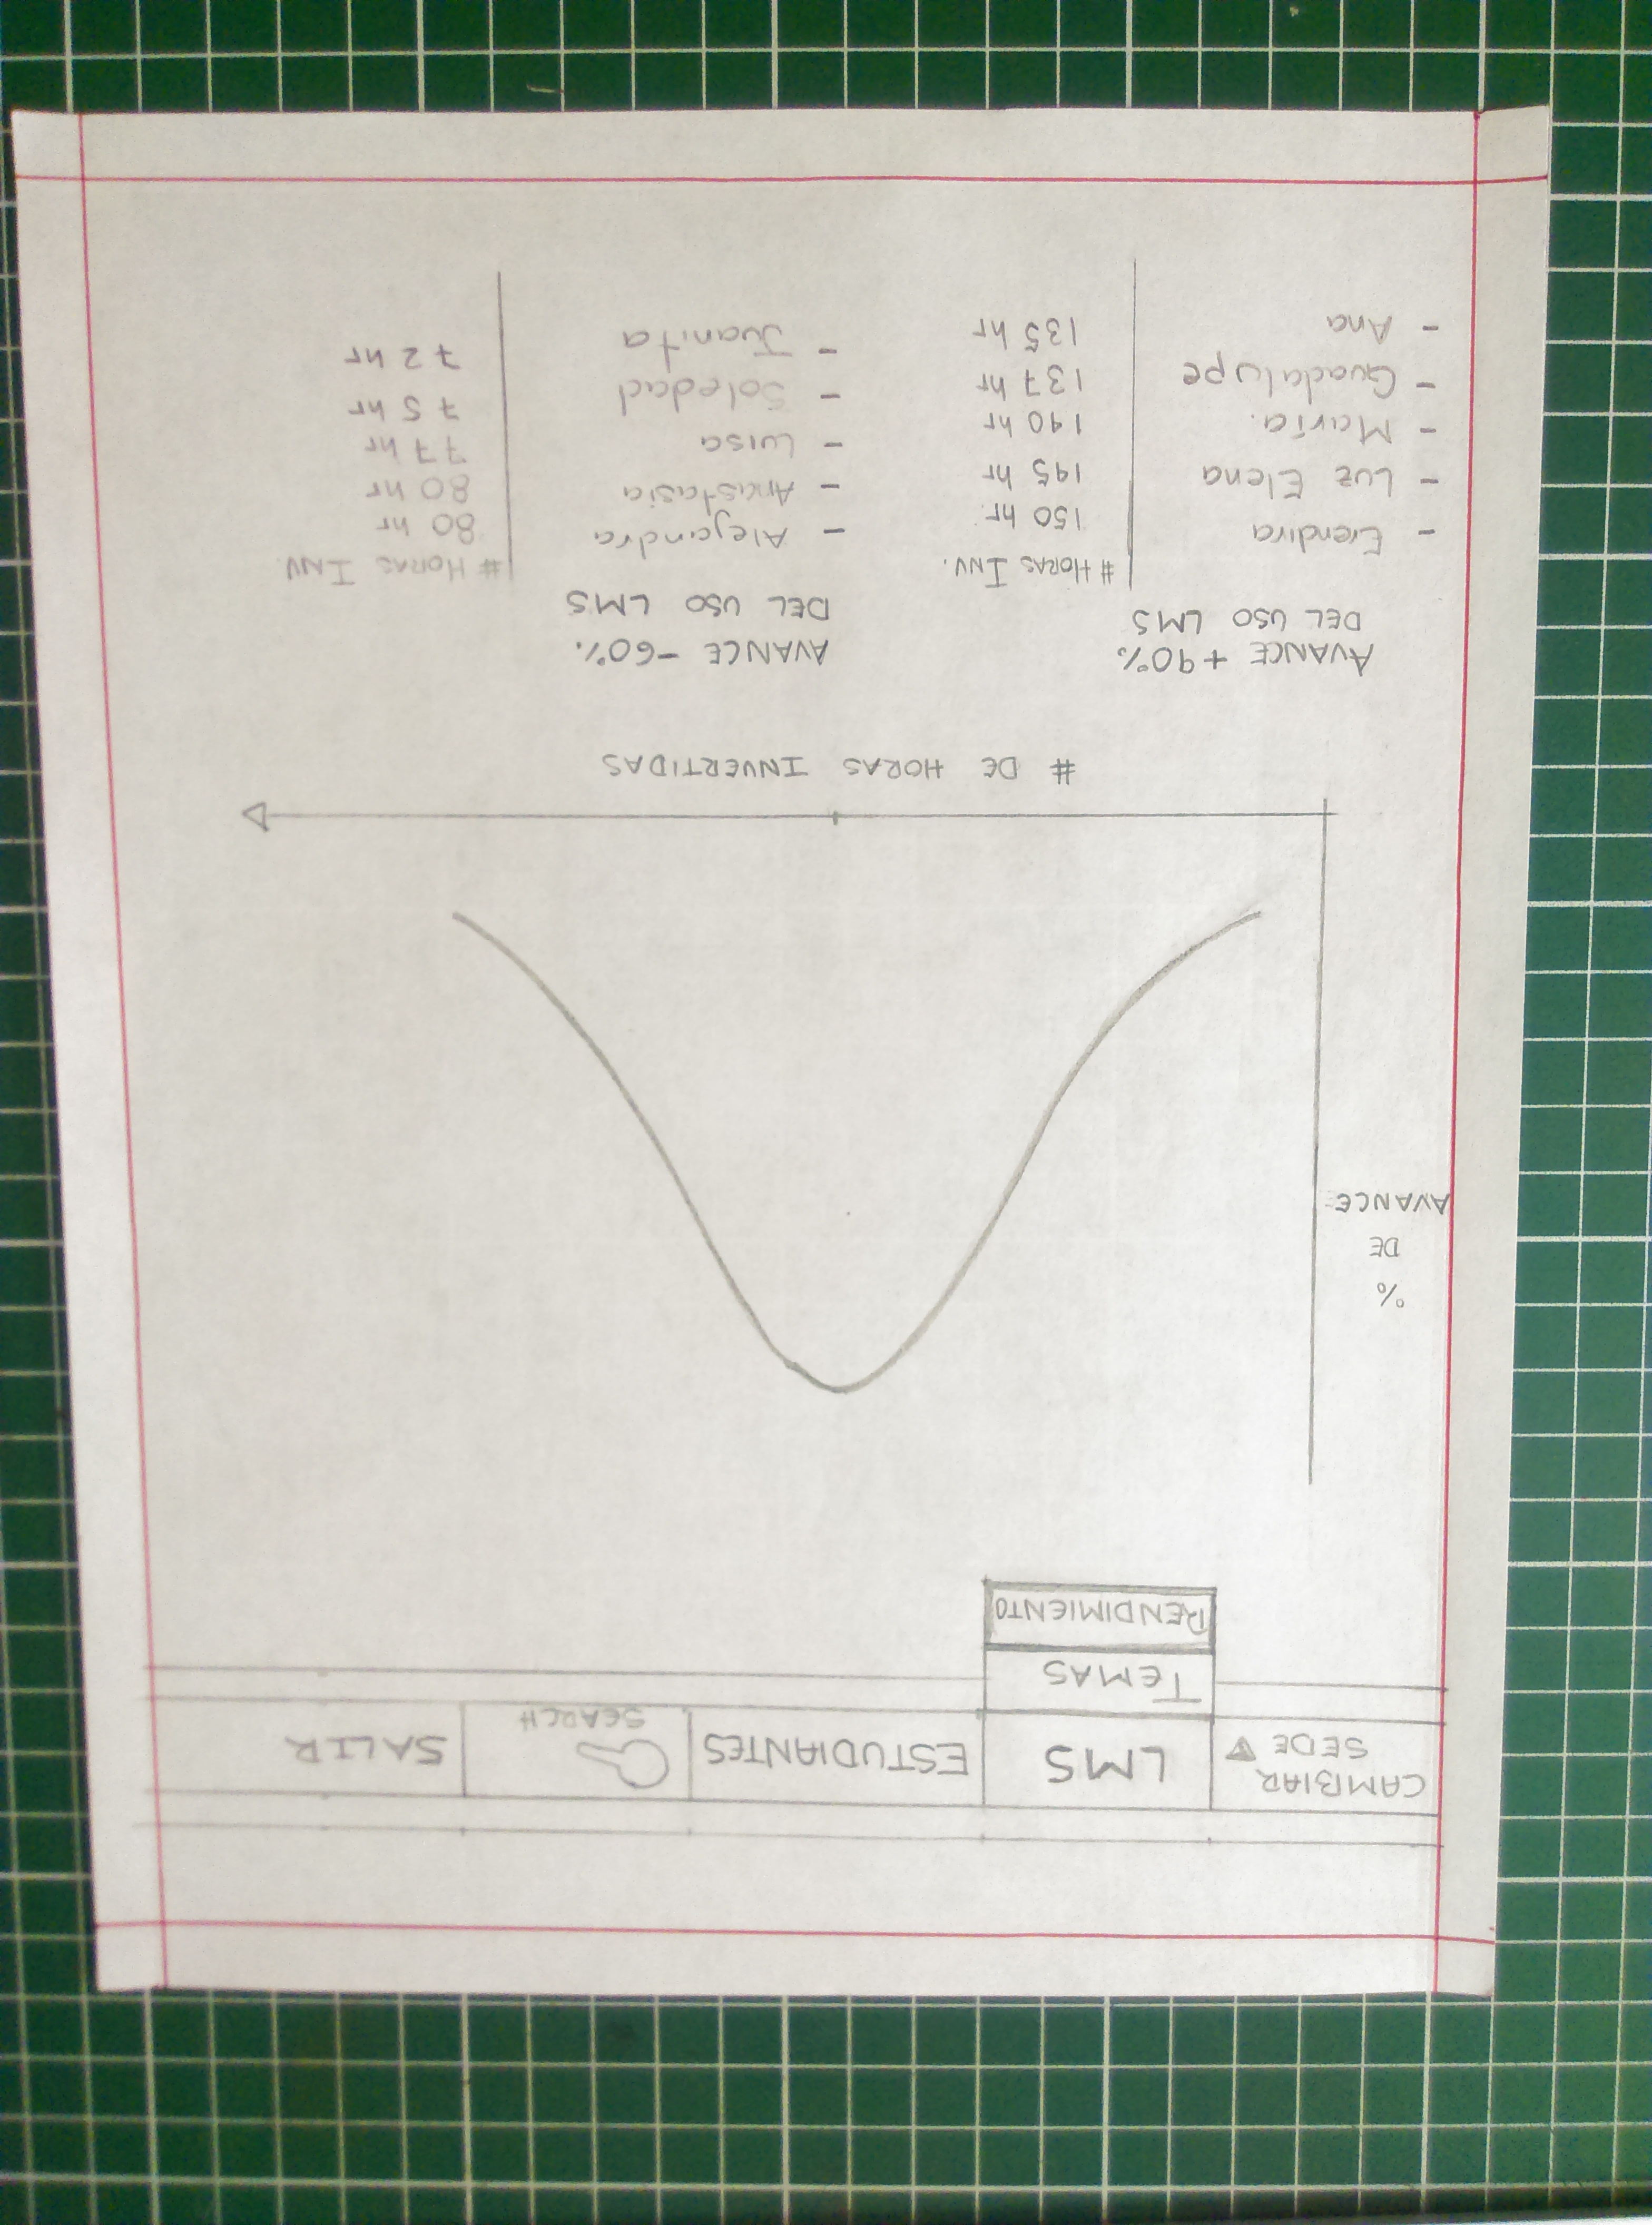 CAMBIAR
SEDE
LMS
ESTUDIANTES
SEARCH
SALIR
TEMAS
RENDIMIENTO
%
DE
AVANCE
# DE HORAS INVERTIDAS
AVANCE +90%
DEL USO LMS
# HORAS INV.
- Erendira 150 hr.
- Luz Elena 145 hr
- María. 140 hr
- Guadalupe 137 hr
- Ana 135 hr
AVANCE -60%.
DEL USO LMS
# HORAS INV.
- Alejandra 80 hr
- Anastasia 80 hr
- Luisa 77 hr
- Soledad 75 hr
- Juanita 72 hr